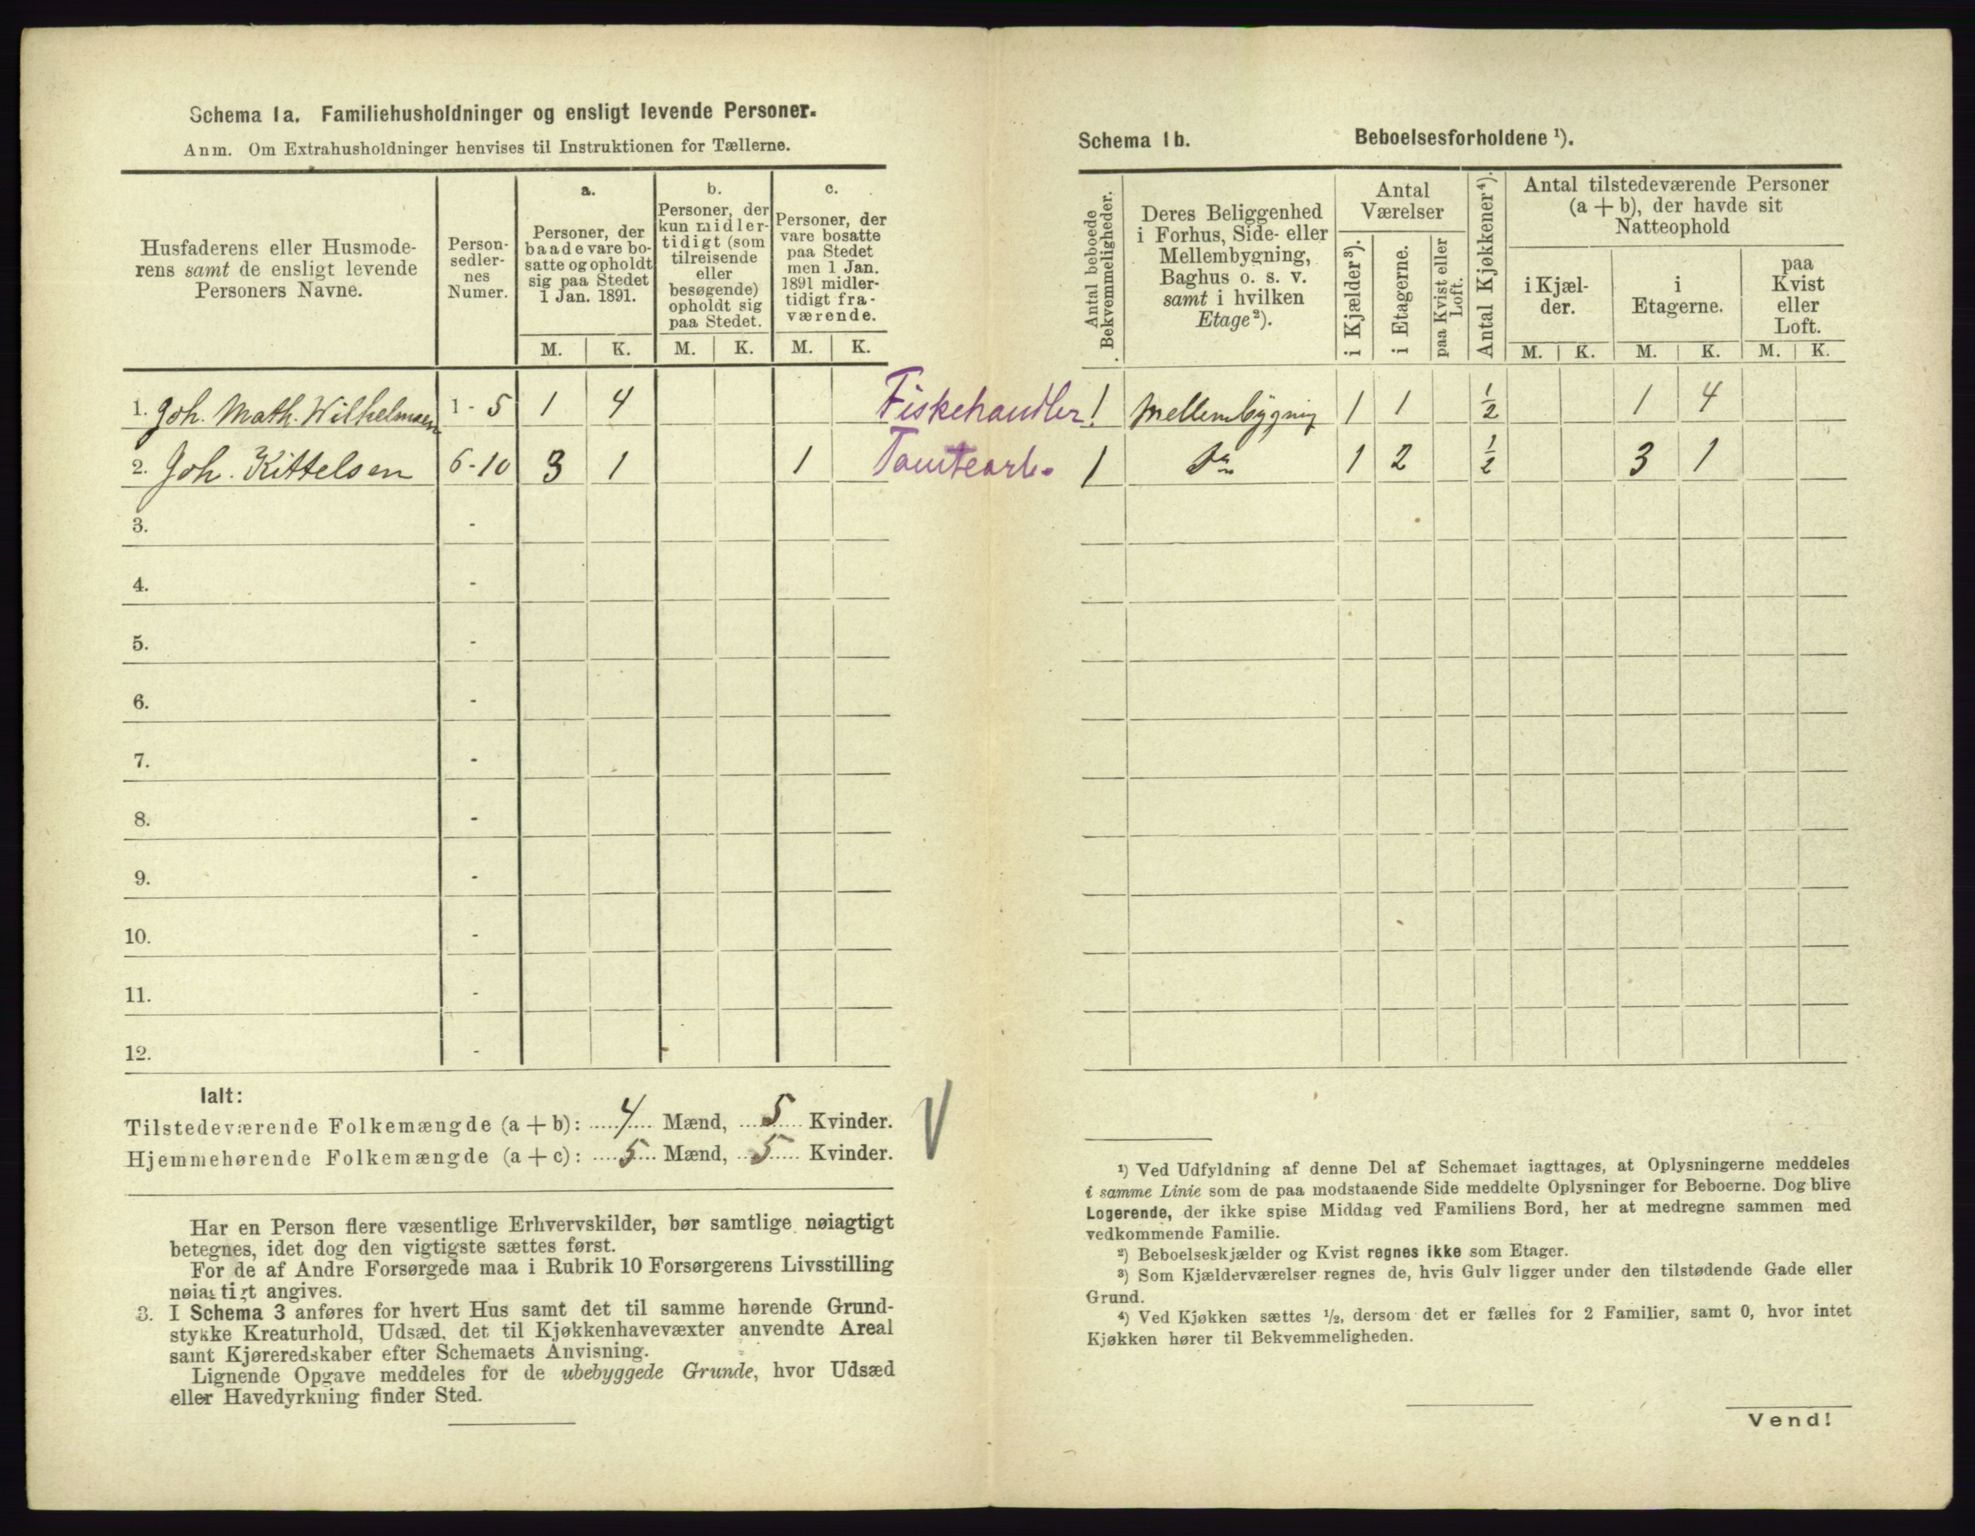 Schema 1a. Familiehusholdninger og ensligt levende Personer.
Anm. Om Extrahusholdninger henvises til Instruktionen for Tællerne.
Husfaderens eller Husmode-
rens samt de ensligt levende
Personers Navne.
Person-
sedler-
nes
Numer.
a.
Personer, der
baade vare bo-
satte og opholdt
sig paa Stedet
1 Jan. 1891.
b.
Personer, der
kun midler-
tidigt (som
tilreisende
eller
besøgende)
opholdt sig
paa Stedet.
c.
Personer, der
vare bosatte
paa Stedet
men 1 Jan.
1891 midler-
tidigt fra-
værende.
M. K. M. K. M. K.
1. Joh. Math. Wilhelmsen 1 - 5 1 4 Fiskehandler
2. Joh. Kittelsen 6-10 3 1 1 Tomtearb.
3. -
4. -
5. -
6. -
7. -
8. -
9. -
10. -
11. -
12. -
Ialt:
Tilstedeværende Folkemængde (a + b): 4 Mænd, 5 Kvinder.
Hjemmehørende Folkemængde (a + c): 5 Mænd, 5 Kvinder.
Har en Person flere væsentlige Erhvervskilder, bør samtlige nøiagtigt
betegnes, idet dog den vigtigste sættes først.
For de af Andre Forsørgede maa i Rubrik 10 Forsørgerens Livsstilling
nøiagtigt angives.
3. I Schema 3 anføres for hvert Hus samt det til samme hørende Grund-
stykke Kreaturhold, Udsæd, det til Kjøkkenhavevæxter anvendte Areal
samt Kjøreredskaber efter Schemaets Anvisning.
Lignende Opgave meddeles for de ubebyggede Grunde, hvor Udsæd
eller Havedyrkning finder Sted.
Schema 1b. Beboelsesforholdene ¹).
Antal beboede
Bekvemmeligheder.
Deres Beliggenhed
i Forhus, Side- eller
Mellembygning,
Baghus o. s. v.
samt i hvilken
Etage²).
Antal
Værelser
i Kjælder³).
i Etagerne.
paa Kvist eller
Loft.
Antal Kjøkkener⁴).
Antal tilstedeværende Personer
(a + b), der havde sit
Natteophold
i Kjæl-
der.
i
Etagerne.
paa
Kvist
eller
Loft.
M. K. M. K. M. K.
1 Mellembygning 1 1 ½ 1 4
1 Do 1 2 ½ 3 1
¹) Ved Udfyldning af denne Del af Schemaet iagttages, at Oplysningerne meddeles
i samme Linie som de paa modstaaende Side meddelte Oplysninger for Beboerne. Dog blive
Logerende, der ikke spise Middag ved Familiens Bord, her at medregne sammen med
vedkommende Familie.
²) Beboelseskjælder og Kvist regnes ikke som Etager.
³) Som Kjælderværelser regnes de, hvis Gulv ligger under den tilstødende Gade eller
Grund.
⁴) Ved Kjøkken sættes ½, dersom det er fælles for 2 Familier, samt 0, hvor intet
Kjøkken hører til Bekvemmeligheden.
Vend!